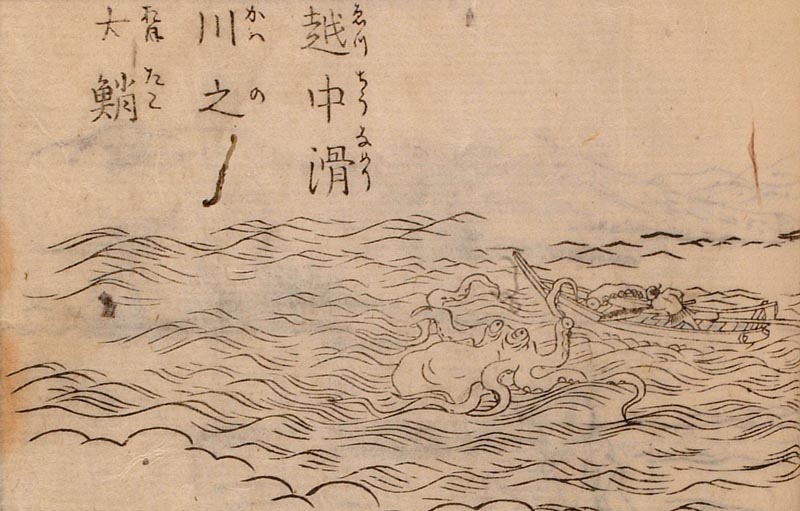 越中滑
ゑつちうなめり
川之
かハの
大鮹
おほだこ